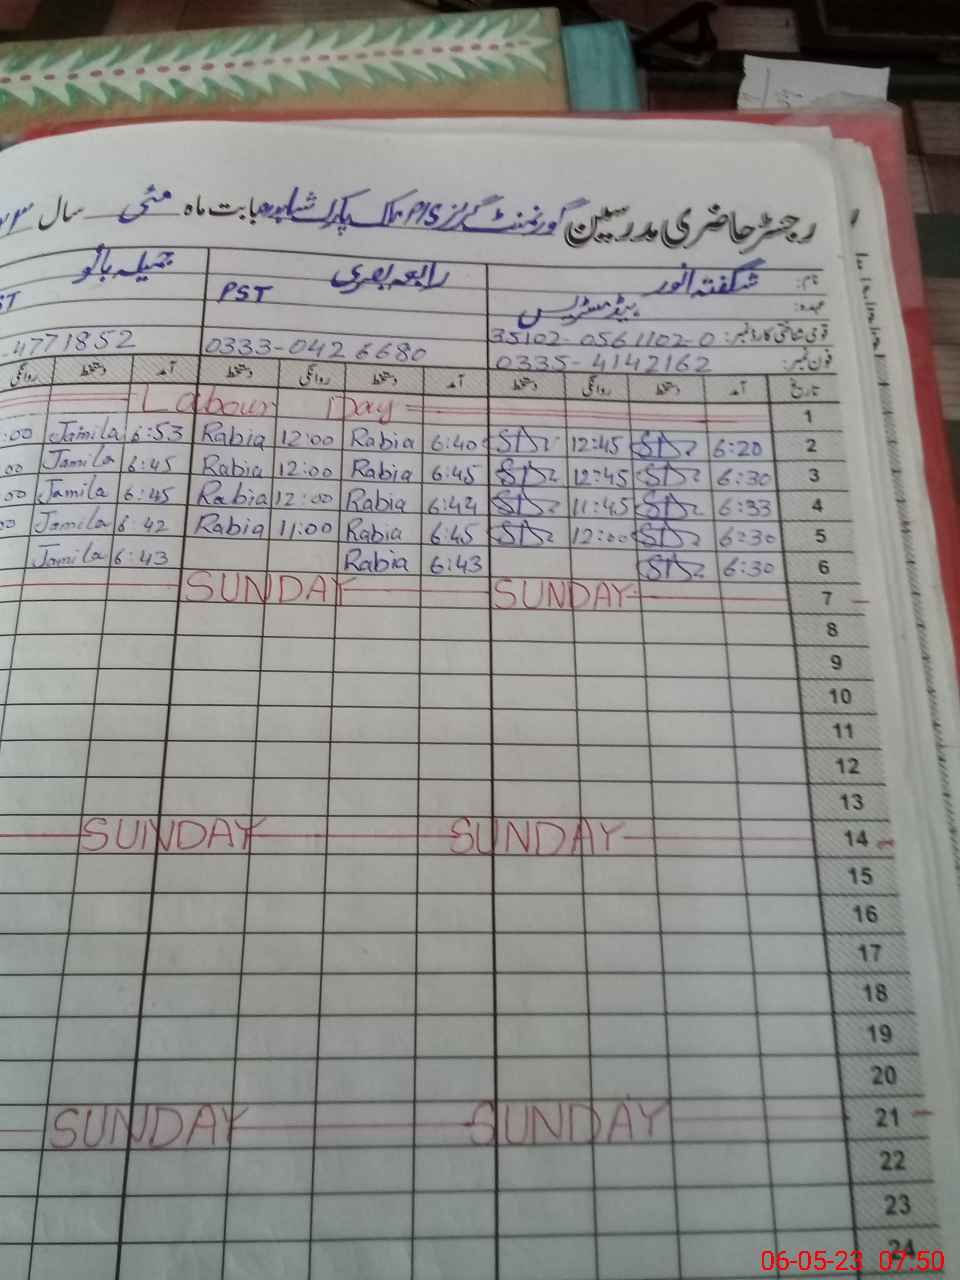 رجسٹر حاضری مدرسین گورنمنٹ گرلز P/S ملک پارک شاہدرہ بابت ماہ مئی سال
نام: شگفتہ انور رابعہ بصری جمیلہ بانو
عہدہ: ہیڈ مسٹریس PST ST
قومی شناختی کارڈ نمبر: 35102-0561102-0
فون نمبر: 0335-4142162 0333-042 6680 4771852
تاریخ آمد دستخط روانگی دستخط آمد دستخط روانگی دستخط آمد دستخط روانگی
1 Labour Day
2 6:20 12:45 6:40 Rabia 12:00 Rabia 6:53 Jamila :00
3 6:30 12:45 6:45 Rabia 12:00 Rabia 6:45 Jamila 00
4 6:33 11:45 6:44 Rabia 12:00 Rabia 6:45 Jamila 00
5 6:30 12:00 6:45 Rabia 11:00 Rabia 6:42 Jamila 00
6 6:30 6:43 Rabia 6:43 Jamila
7 SUNDAY SUNDAY
8
9
10
11
12
13
14 SUNDAY SUNDAY
15
16
17
18
19
20
21 SUNDAY SUNDAY
22
23
24
06-05-23 07:50